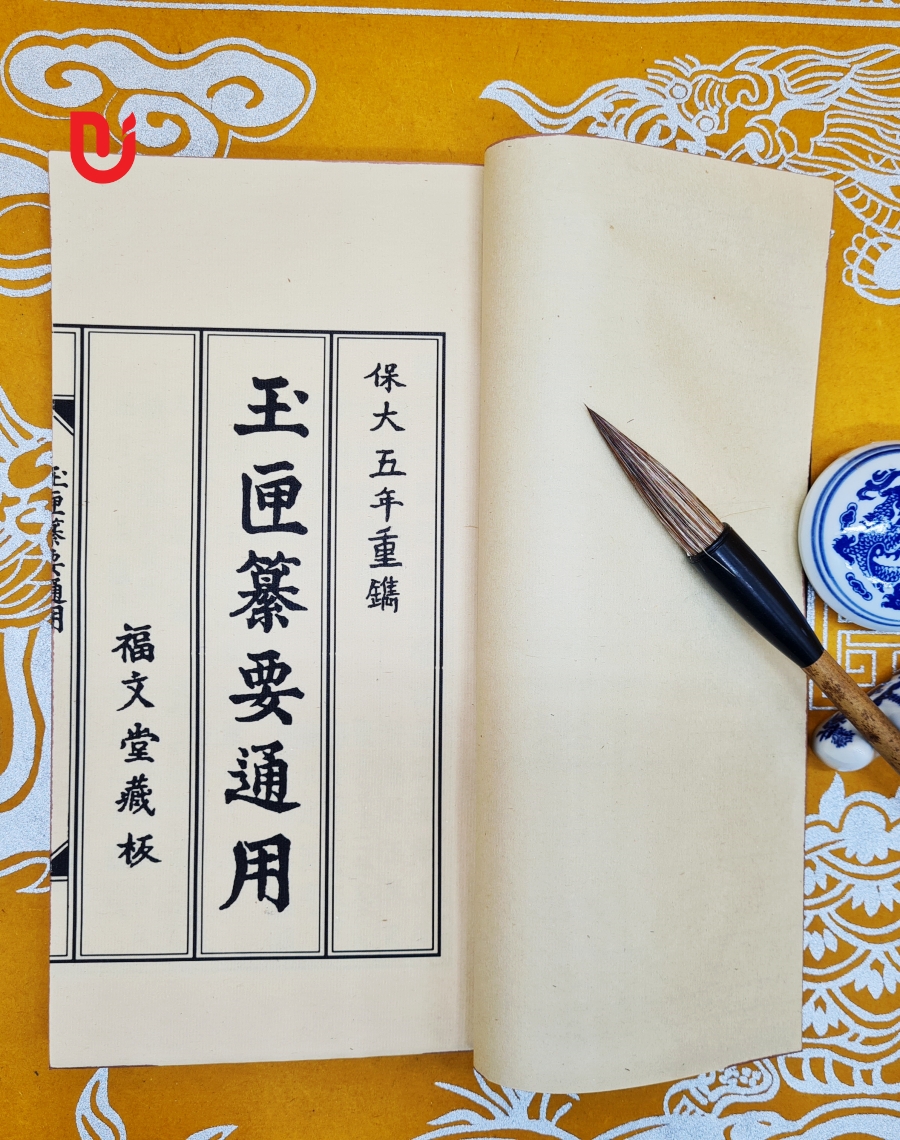 保大五年重鐫
玉匣纂要通用
福文堂藏板
玉匣纂要通用